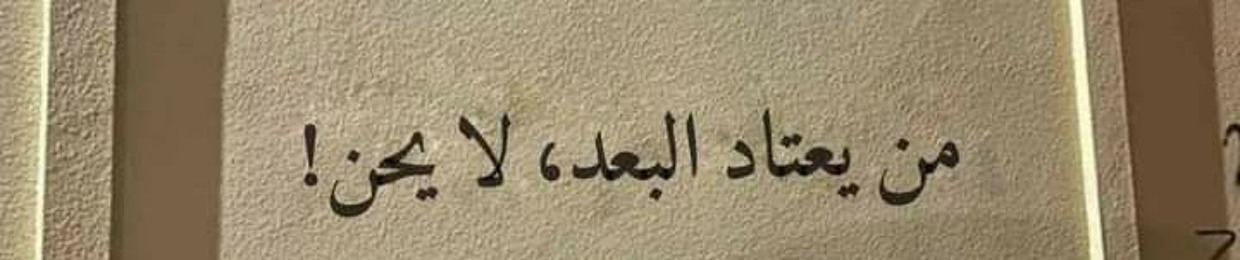 من يعتاد البعد، لا يحن!